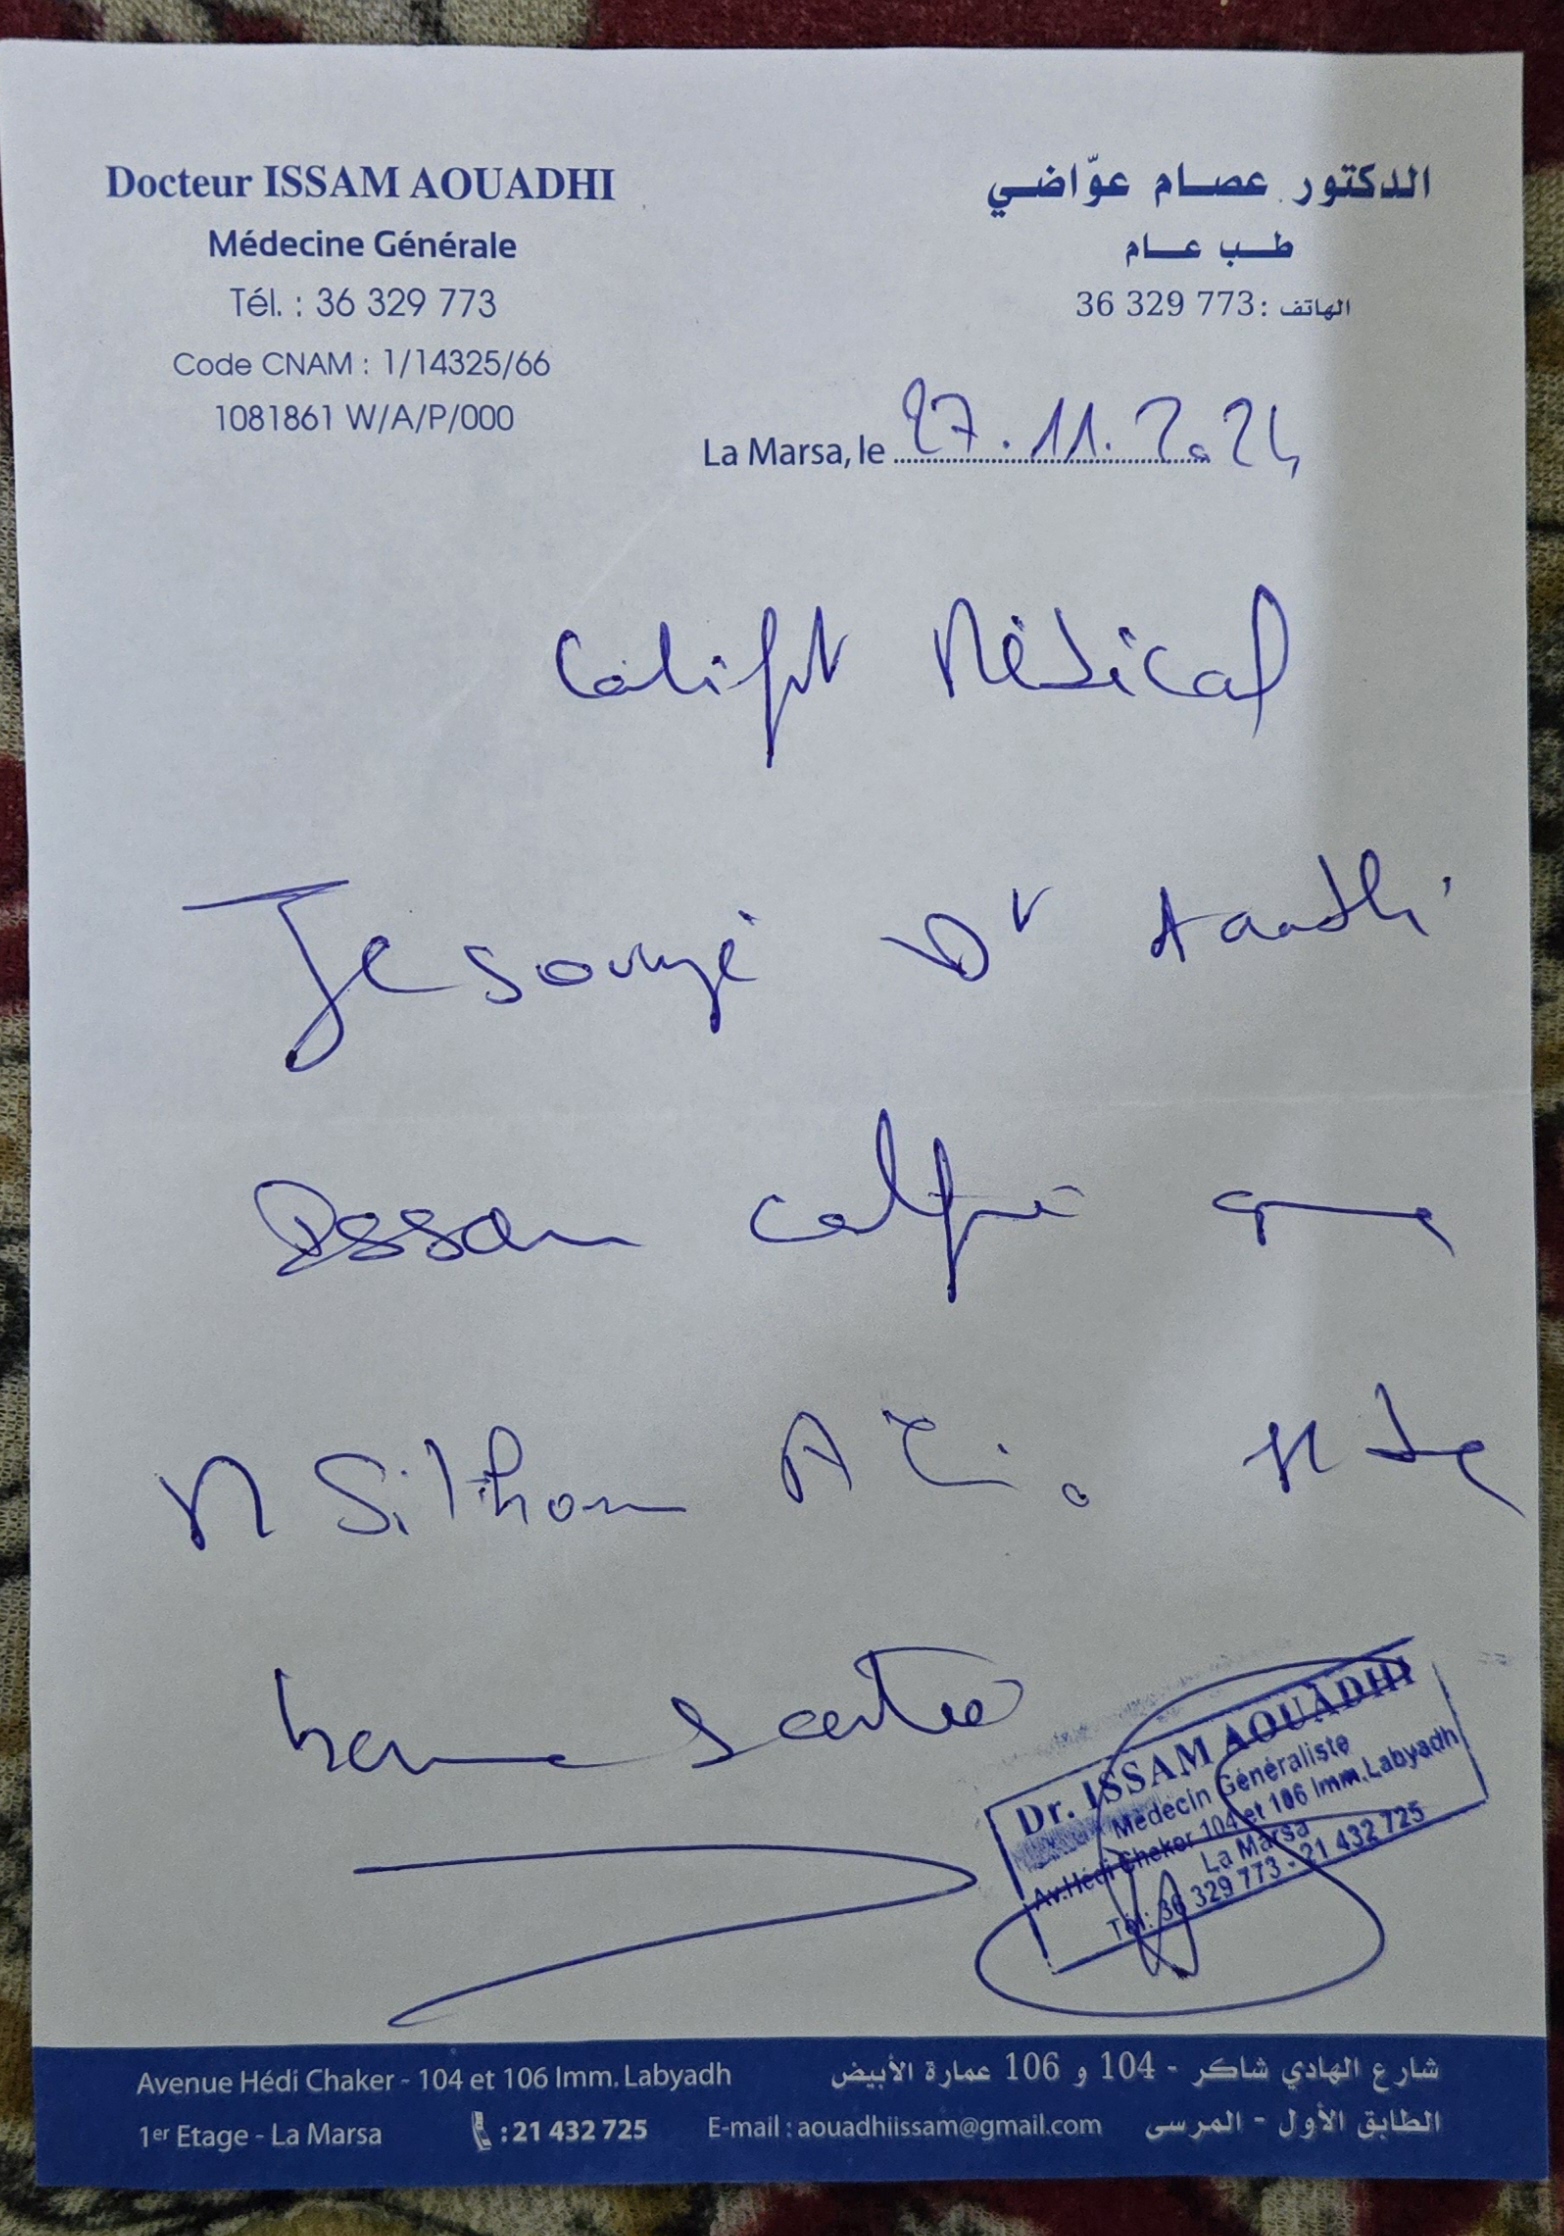 Docteur ISSAM AOUADHI
Médecine Générale
Tél. : 36 329 773
Code CNAM : 1/14325/66
1081861 W/A/P/000
الدكتور عصام عوّاضي
طب عام
الهاتف : 773 329 36
La Marsa, le 27.11.2024
Médical
Je Dr Aouadhi
Issam que
bonne santé
Dr. ISSAM AOUADHI
Médecin Généraliste
Av.Hédi Cheker 104 et 106 Imm.Labyadh
La Marsa
Tél: 36 329 773 - 21 432 725
Avenue Hédi Chaker - 104 et 106 Imm. Labyadh
1er Etage - La Marsa : 21 432 725 E-mail : aouadhiissam@gmail.com
شارع الهادي شاكر - 104 و 106 عمارة الأبيض
الطابق الأول - المرسى